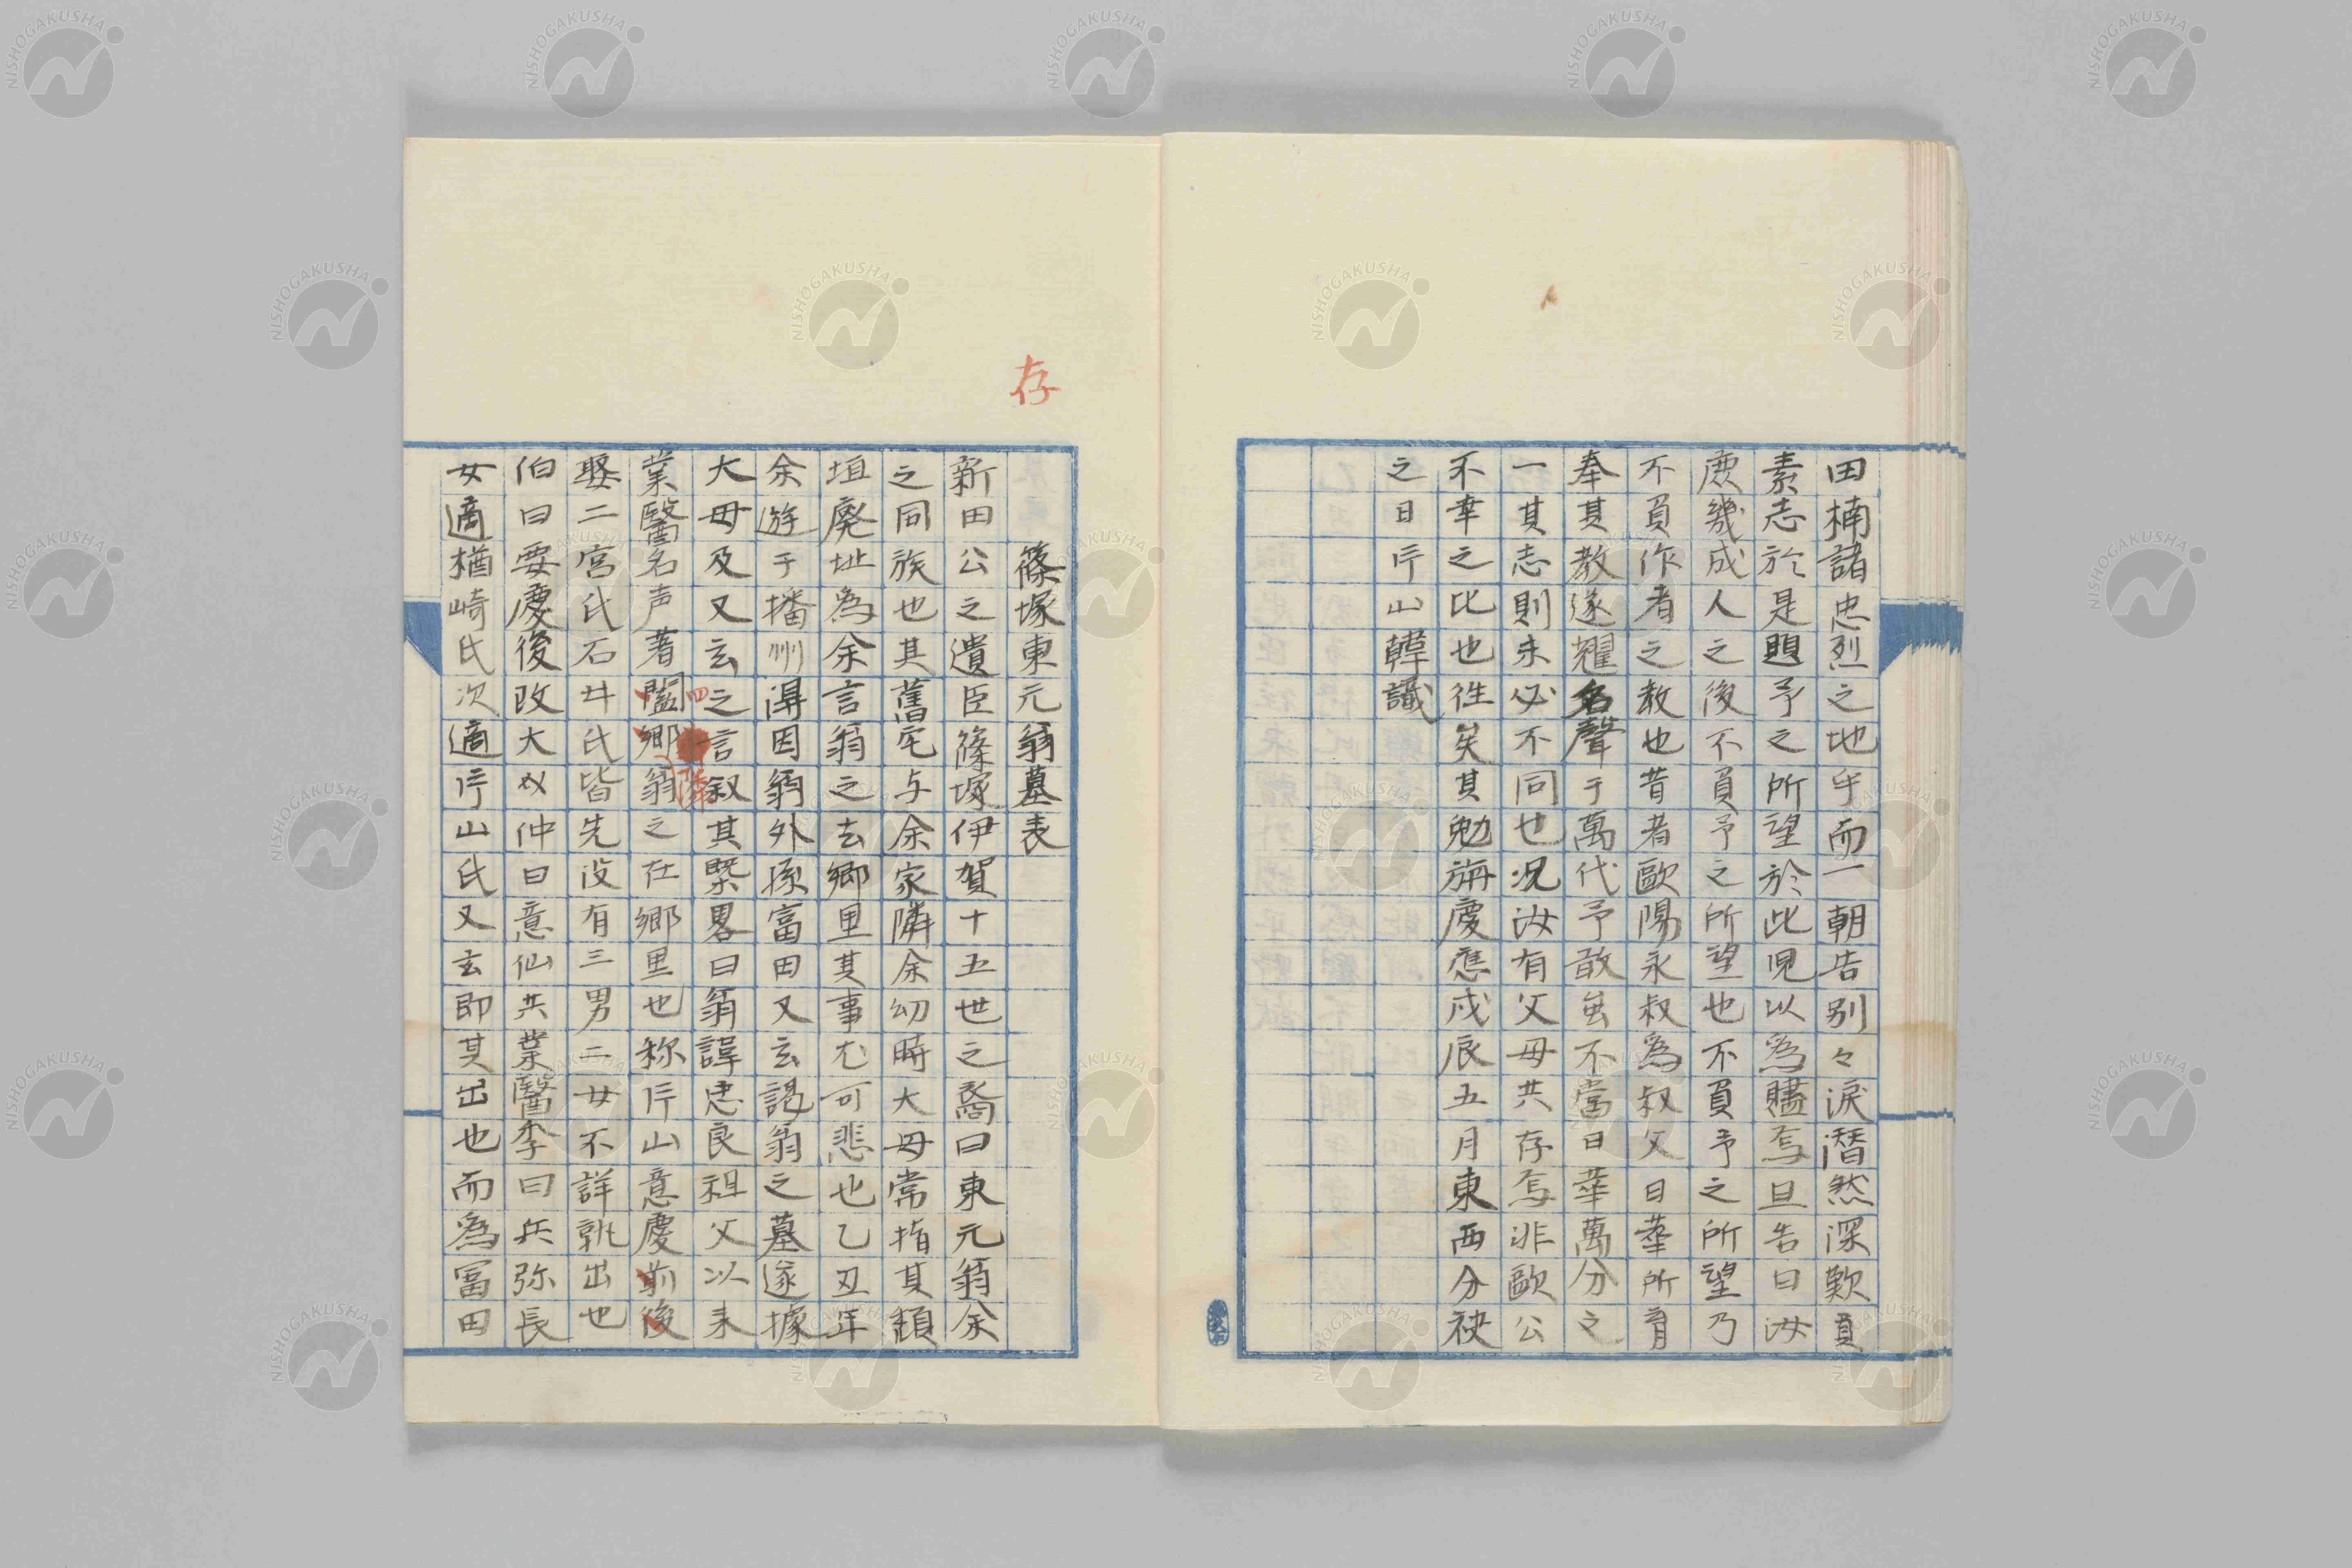 田楠諸忠烈之地乎而一朝告別々淚潛然深歎負
素志於是題予之所望於此児以為贐焉且告曰汝
庶幾成人之後不負予之所望也不負予之所望乃
不負作者之教也昔者歐陽永叔為叔父日華所育
奉其教遂耀名聲于萬代予敢虽不當日華萬分之
一其志則未必不同也况汝有父母共存焉非歐公
不幸之比也徃矣其勉旃慶應戊辰五月東西分袂
之日片山韓識
存
篠塚東元翁墓表
新田公之遺臣篠塚伊賀十五世之裔曰東元翁余
之同族也其舊宅与余家隣余幼時大母常指其頽
垣廢址為余言翁之去郷里其事尤可悲也乙丑年
余遊于播州淂因翁外孫富田又玄謁翁之墓遂據
大母及又玄之言叙其槩畧曰翁諱忠良祖父以来
業醫名声著闔郷翁之在郷里也称片山意慶前後
四隣
娶二宮氏石井氏皆先没有三男二女不詳孰出也
伯曰要慶後改大必仲曰意仙共業醫季曰兵弥長
女適楢崎氏次適片山氏又玄即其出也而為冨田